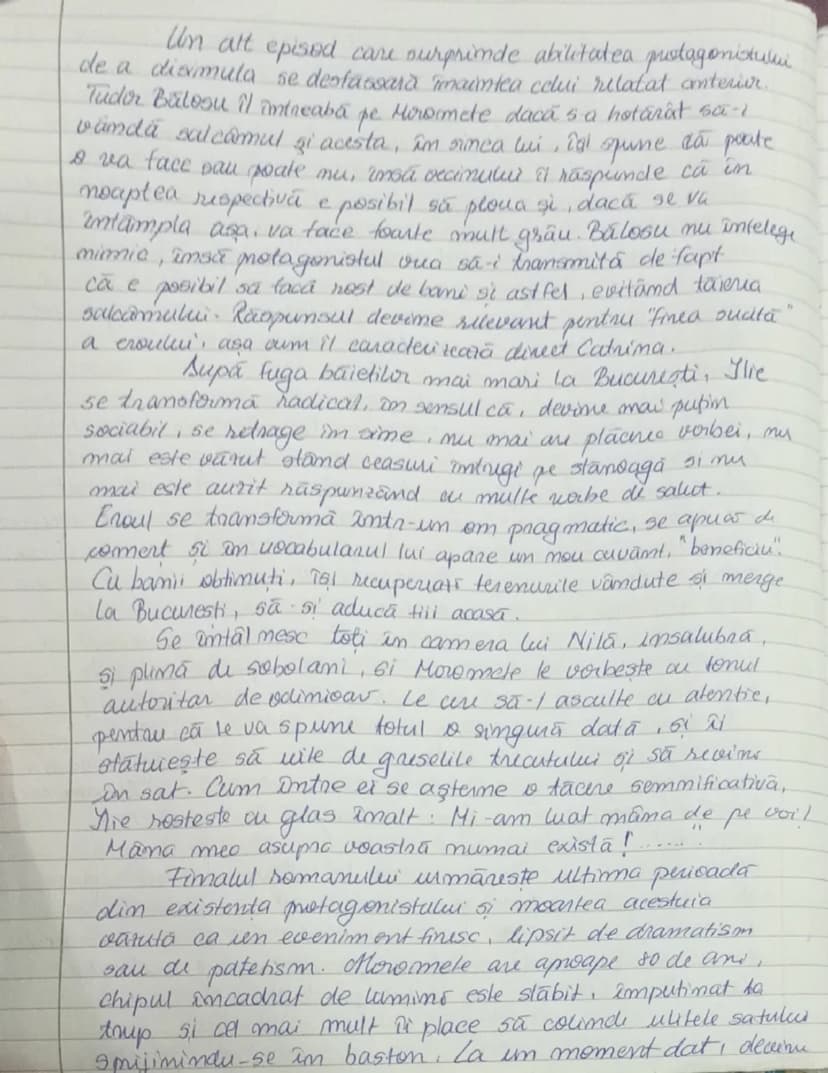 Un alt episod care surprinde abilitatea protagonistului
de a disimula se desfășoară înaintea celui relatat anterior.
Tudor Bălosu îl întreabă pe Moromete dacă s-a hotărât să-i
vândă salcâmul și acesta, în sinea lui, își spune că poate
o va face sau poate nu, însă vecinului îi răspunde că în
noaptea respectivă e posibil să ploua și, dacă se va
întâmpla așa, va face foarte mult grâu. Bălosu nu înțelege
nimic, însă protagonistul vrea să-i transmită de fapt
că e posibil să facă rost de bani și astfel, evitând tăierea
salcâmului. Răspunsul devine relevant pentru "firea sucită"
a eroului, așa cum îl caracterizează direct Catrina.
După fuga băieților mai mari la București, Ilie
se transformă radical, în sensul că, devine mai puțin
sociabil, se retrage în sine, nu mai are plăcerea vorbei, nu
mai este văzut stând ceasuri întregi pe stănoagă și nu
mai este auzit răspunzând cu multe vorbe de salut.
Eroul se transformă într-un om pragmatic, se apucă de
comerț și în vocabularul lui apare un nou cuvânt, "beneficiu".
Cu banii obținuți, își recuperează terenurile vândute și merge
la București, să-și aducă fiii acasă.
Se întâlnesc toți în camera lui Nilă, insalubră,
și plină de șobolani, și Moromete le vorbește cu tonul
autoritar de odinioară. Le cere să-l asculte cu atenție,
pentru că le va spune totul o singură dată, și îi
sfătuiește să uite de greșelile trecutului și să revină
în sat. Cum între ei se așterne o tăcere semnificativă,
Ilie rostește cu glas înalt: Mi-am luat mâna de pe voi!
Mâna mea asupra voastră numai există!......"
Finalul romanului urmărește ultima perioadă
din existența protagonistului și moartea acestuia
văzută ca un eveniment firesc, lipsit de dramatism
sau de patetism. Moromete are aproape 80 de ani,
chipul încadrat de lumină este slăbit, împuținat la
trup și cel mai mult îi place să colinde ulițele satului
sprijinindu-se în baston. La un moment dat,